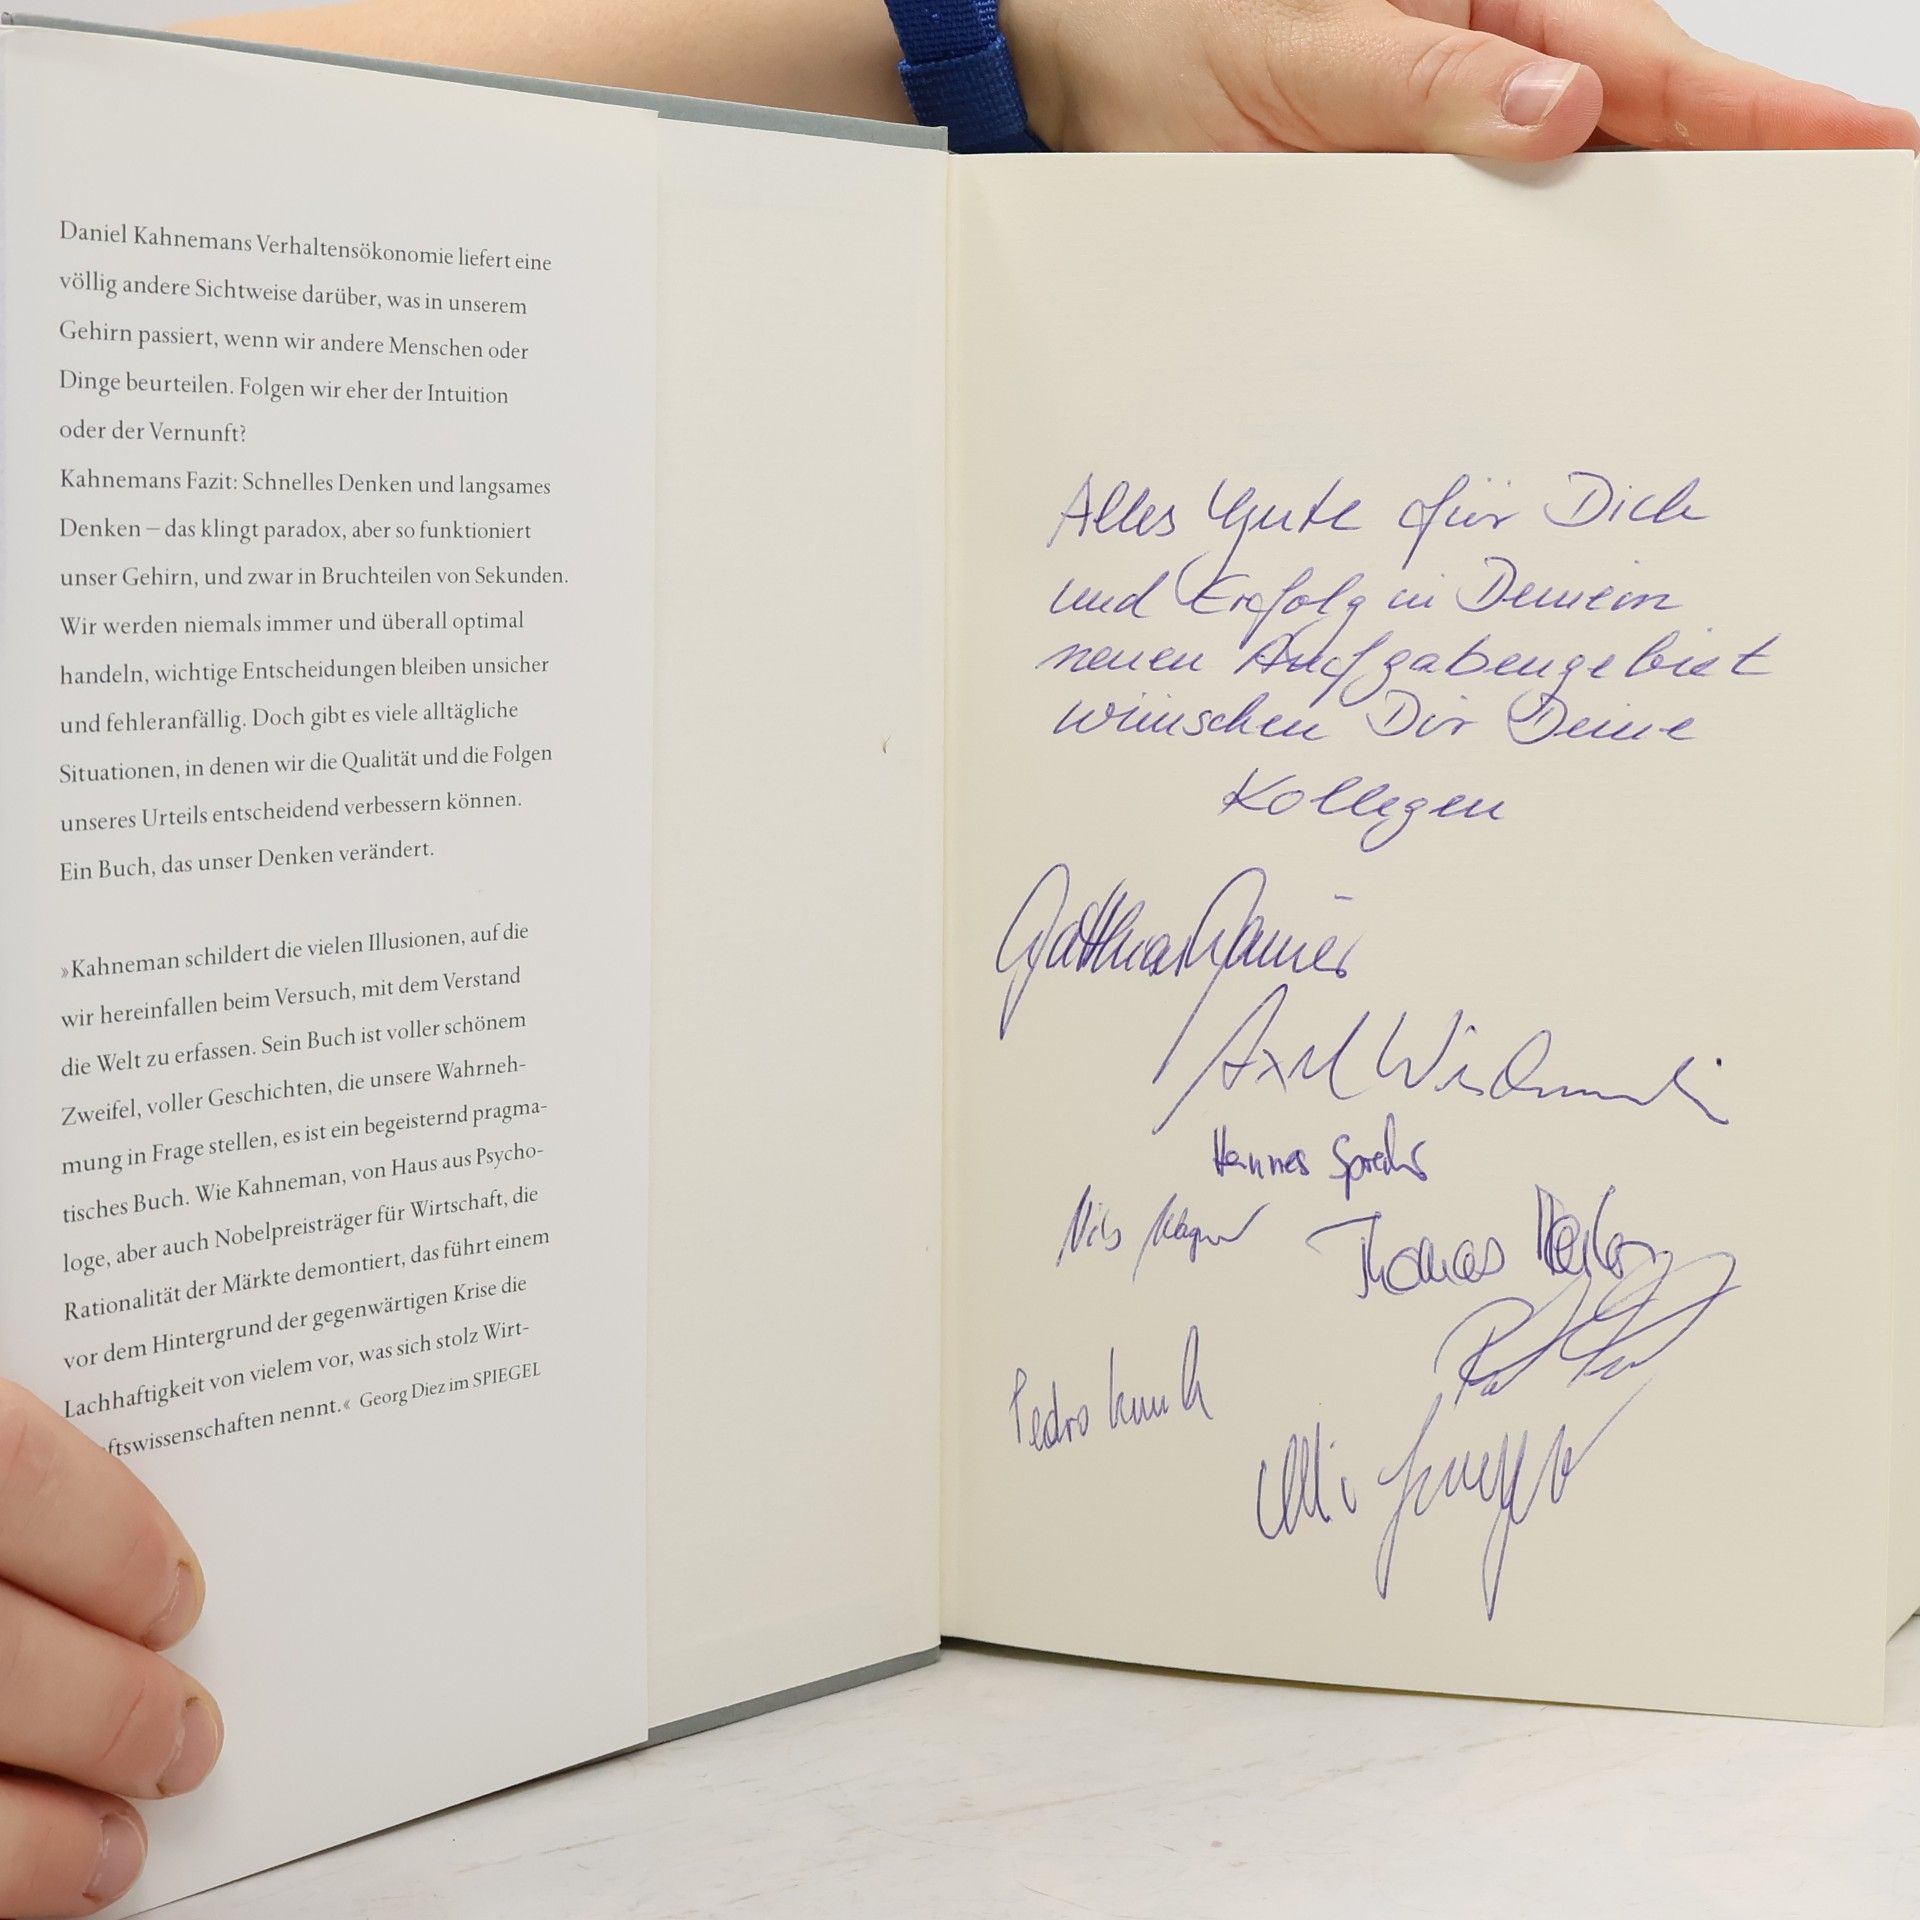 Daniel Kahnemans Verhaltensökonomie liefert eine
völlig andere Sichtweise darüber, was in unserem
Gehirn passiert, wenn wir andere Menschen oder
Dinge beurteilen. Folgen wir eher der Intuition
oder der Vernunft?
Kahnemans Fazit: Schnelles Denken und langsames
Denken – das klingt paradox, aber so funktioniert
unser Gehirn, und zwar in Bruchteilen von Sekunden.
Wir werden niemals immer und überall optimal
handeln, wichtige Entscheidungen bleiben unsicher
und fehleranfällig. Doch gibt es viele alltägliche
Situationen, in denen wir die Qualität und die Folgen
unseres Urteils entscheidend verbessern können.
Ein Buch, das unser Denken verändert.
»Kahneman schildert die vielen Illusionen, auf die
wir hereinfallen beim Versuch, mit dem Verstand
die Welt zu erfassen. Sein Buch ist voller schönem
Zweifel, voller Geschichten, die unsere Wahrneh-
mung in Frage stellen, es ist ein begeisternd pragma-
tisches Buch. Wie Kahneman, von Haus aus Psycho-
loge, aber auch Nobelpreisträger für Wirtschaft, die
Rationalität der Märkte demontiert, das führt einem
vor dem Hintergrund der gegenwärtigen Krise die
Lachhaftigkeit von vielem vor, was sich stolz Wirt-
ftswissenschaften nennt.« Georg Diez im SPIEGEL
Alles Gute für Dich
und Erfolg in Deinem
neuen Aufgabengebiet
wünschen Dir Deine
Kollegen
Matthias
Axel
Hannes
Nils Wagner
Thomas
Pedro
Ulli